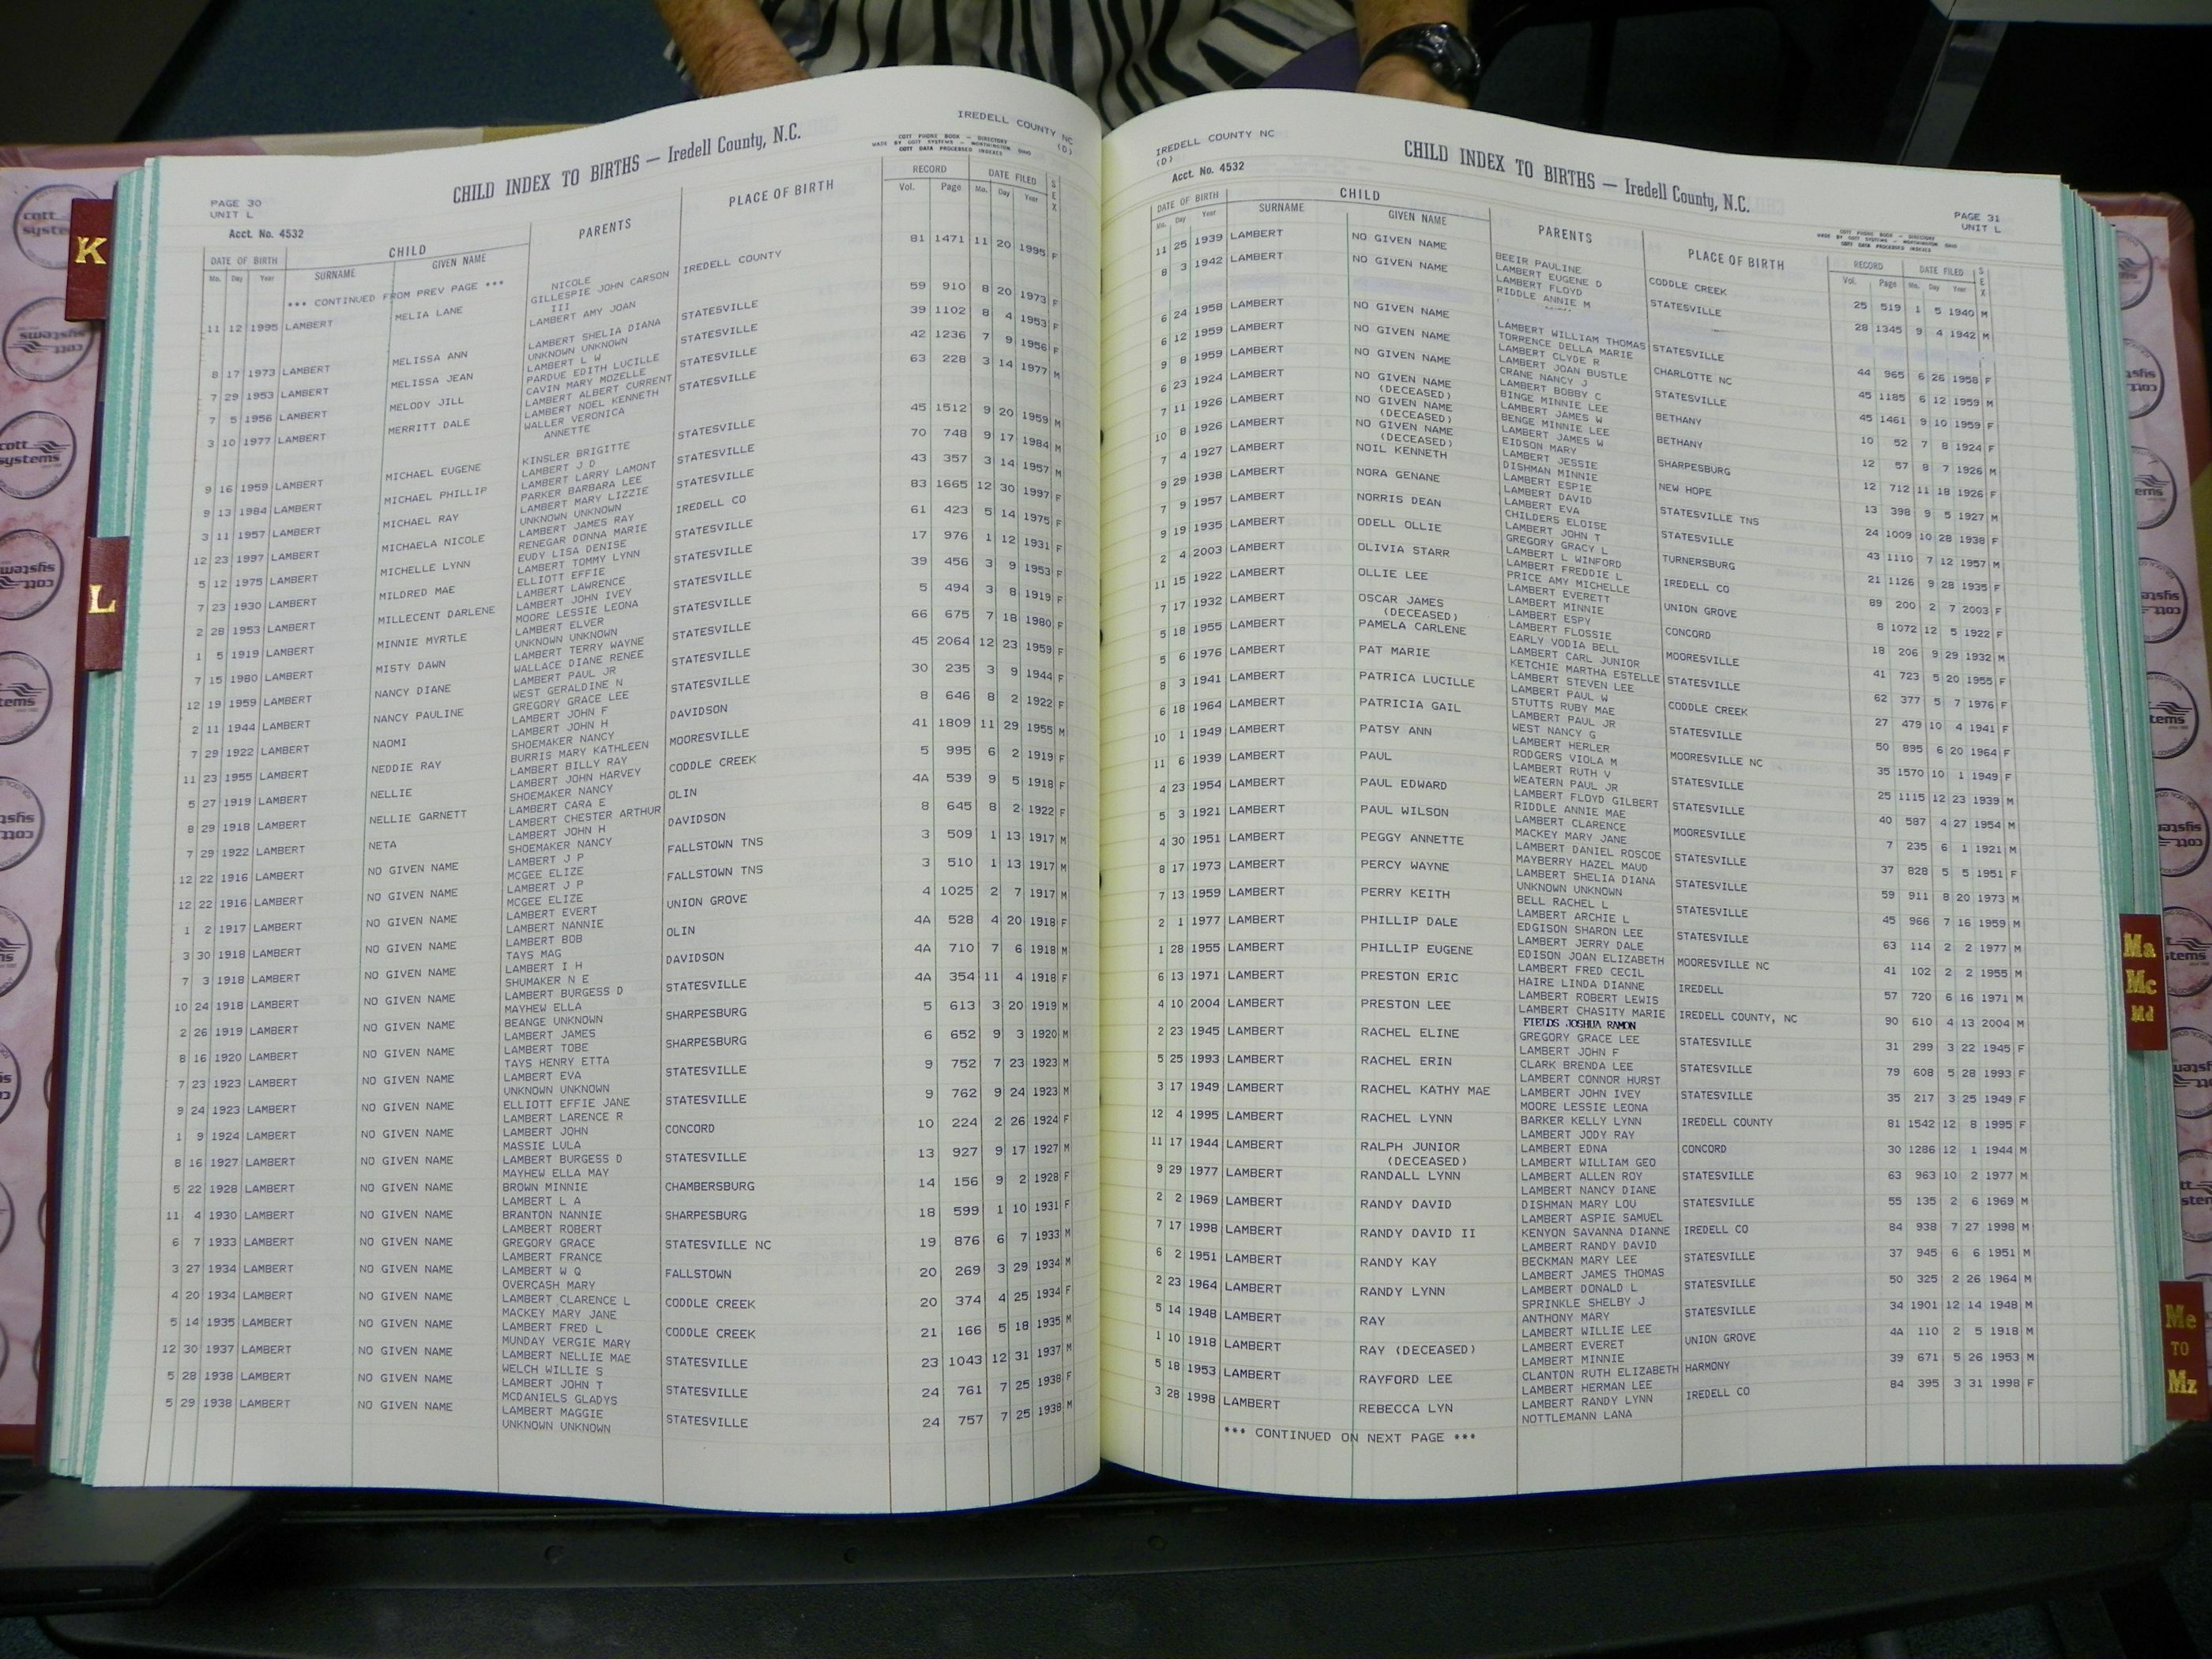 IREDELL COUNTY NC
(D)
CHILD INDEX TO BIRTHS — Iredell County, N.C.
COTT PHONE BOOK — DIRECTORY
MADE BY COTT SYSTEMS — WORTHINGTON OHIO
COTT DATA PROCESSED INDEXES
PAGE 30
UNIT L
Acct. No. 4532
DATE OF BIRTH CHILD PARENTS PLACE OF BIRTH RECORD DATE FILED SEX
Mo. Day Year SURNAME GIVEN NAME Vol. Page Mo. Day Year
*** CONTINUED FROM PREV PAGE ***
NICOLE
11 12 1995 LAMBERT MELIA LANE GILLESPIE JOHN CARSON IREDELL COUNTY 81 1471 11 20 1995 F
III
LAMBERT AMY JOAN
8 17 1973 LAMBERT MELISSA ANN LAMBERT SHELIA DIANA STATESVILLE 59 910 8 20 1973 F
UNKNOWN UNKNOWN
7 29 1953 LAMBERT MELISSA JEAN LAMBERT L W STATESVILLE 39 1102 8 4 1953 F
PARDUE EDITH LUCILLE
7 5 1956 LAMBERT MELODY JILL CAVIN MARY MOZELLE STATESVILLE 42 1236 7 9 1956 F
LAMBERT ALBERT CURRENT
3 10 1977 LAMBERT MERRITT DALE LAMBERT NOEL KENNETH STATESVILLE 63 228 3 14 1977 M
WALLER VERONICA
ANNETTE
9 16 1959 LAMBERT MICHAEL EUGENE KINSLER BRIGITTE STATESVILLE 45 1512 9 20 1959 M
LAMBERT J D
9 13 1984 LAMBERT MICHAEL PHILLIP LAMBERT LARRY LAMONT STATESVILLE 70 748 9 17 1984 M
PARKER BARBARA LEE
3 11 1957 LAMBERT MICHAEL RAY LAMBERT MARY LIZZIE STATESVILLE 43 357 3 14 1957 M
UNKNOWN UNKNOWN
12 23 1997 LAMBERT MICHAELA NICOLE LAMBERT JAMES RAY IREDELL CO 83 1665 12 30 1997 F
RENEGAR DONNA MARIE
5 12 1975 LAMBERT MICHELLE LYNN EUDY LISA DENISE STATESVILLE 61 423 5 14 1975 F
LAMBERT TOMMY LYNN
7 23 1930 LAMBERT MILDRED MAE ELLIOTT EFFIE STATESVILLE 17 976 1 12 1931 F
LAMBERT LAWRENCE
2 28 1953 LAMBERT MILLECENT DARLENE LAMBERT JOHN IVEY STATESVILLE 39 456 3 9 1953 F
MOORE LESSIE LEONA
1 5 1919 LAMBERT MINNIE MYRTLE LAMBERT ELVER STATESVILLE 5 494 3 8 1919 F
UNKNOWN UNKNOWN
7 15 1980 LAMBERT MISTY DAWN LAMBERT TERRY WAYNE STATESVILLE 66 675 7 18 1980 F
WALLACE DIANE RENEE
12 19 1959 LAMBERT NANCY DIANE LAMBERT PAUL JR STATESVILLE 45 2064 12 23 1959 F
WEST GERALDINE N
2 11 1944 LAMBERT NANCY PAULINE GREGORY GRACE LEE STATESVILLE 30 235 3 9 1944 F
LAMBERT JOHN F
7 29 1922 LAMBERT NAOMI LAMBERT JOHN H DAVIDSON 8 646 8 2 1922 F
SHOEMAKER NANCY
11 23 1955 LAMBERT NEDDIE RAY BURRIS MARY KATHLEEN MOORESVILLE 41 1809 11 29 1955 M
LAMBERT BILLY RAY
5 27 1919 LAMBERT NELLIE LAMBERT JOHN HARVEY CODDLE CREEK 5 995 6 2 1919 F
SHOEMAKER NANCY
8 29 1918 LAMBERT NELLIE GARNETT LAMBERT CARA E OLIN 4A 539 9 5 1918 F
LAMBERT CHESTER ARTHUR
7 29 1922 LAMBERT NETA LAMBERT JOHN H DAVIDSON 8 645 8 2 1922 F
SHOEMAKER NANCY
12 22 1916 LAMBERT NO GIVEN NAME LAMBERT J P FALLSTOWN TNS 3 509 1 13 1917 M
MCGEE ELIZE
12 22 1916 LAMBERT NO GIVEN NAME LAMBERT J P FALLSTOWN TNS 3 510 1 13 1917 M
MCGEE ELIZE
1 2 1917 LAMBERT NO GIVEN NAME LAMBERT EVERT UNION GROVE 4 1025 2 7 1917 M
LAMBERT NANNIE
3 30 1918 LAMBERT NO GIVEN NAME LAMBERT BOB OLIN 4A 528 4 20 1918 F
TAYS MAG
7 3 1918 LAMBERT NO GIVEN NAME LAMBERT I H DAVIDSON 4A 710 7 6 1918 M
SHUMAKER N E
10 24 1918 LAMBERT NO GIVEN NAME LAMBERT BURGESS D STATESVILLE 4A 354 11 4 1918 F
MAYHEW ELLA
2 26 1919 LAMBERT NO GIVEN NAME BEANGE UNKNOWN SHARPESBURG 5 613 3 20 1919 M
LAMBERT JAMES
8 16 1920 LAMBERT NO GIVEN NAME LAMBERT TOBE SHARPESBURG 6 652 9 3 1920 M
TAYS HENRY ETTA
7 23 1923 LAMBERT NO GIVEN NAME LAMBERT EVA STATESVILLE 9 752 7 23 1923 M
UNKNOWN UNKNOWN
9 24 1923 LAMBERT NO GIVEN NAME ELLIOTT EFFIE JANE STATESVILLE 9 762 9 24 1923 M
LAMBERT LARENCE R
1 9 1924 LAMBERT NO GIVEN NAME LAMBERT JOHN CONCORD 10 224 2 26 1924 F
MASSIE LULA
8 16 1927 LAMBERT NO GIVEN NAME LAMBERT BURGESS D STATESVILLE 13 927 9 17 1927 M
MAYHEW ELLA MAY
5 22 1928 LAMBERT NO GIVEN NAME BROWN MINNIE CHAMBERSBURG 14 156 9 2 1928 F
LAMBERT L A
11 4 1930 LAMBERT NO GIVEN NAME BRANTON NANNIE SHARPESBURG 18 599 1 10 1931 F
LAMBERT ROBERT
6 7 1933 LAMBERT NO GIVEN NAME GREGORY GRACE STATESVILLE NC 19 876 6 7 1933 M
LAMBERT FRANCE
3 27 1934 LAMBERT NO GIVEN NAME LAMBERT W Q FALLSTOWN 20 269 3 29 1934 M
OVERCASH MARY
4 20 1934 LAMBERT NO GIVEN NAME LAMBERT CLARENCE L CODDLE CREEK 20 374 4 25 1934 F
MACKEY MARY JANE
5 14 1935 LAMBERT NO GIVEN NAME LAMBERT FRED L CODDLE CREEK 21 166 5 18 1935 M
MUNDAY VERGIE MARY
12 30 1937 LAMBERT NO GIVEN NAME LAMBERT NELLIE MAE STATESVILLE 23 1043 12 31 1937 M
WELCH WILLIE S
5 28 1938 LAMBERT NO GIVEN NAME LAMBERT JOHN T STATESVILLE 24 761 7 25 1938 F
MCDANIELS GLADYS
5 29 1938 LAMBERT NO GIVEN NAME LAMBERT MAGGIE STATESVILLE 24 757 7 25 1938 M
UNKNOWN UNKNOWN
IREDELL COUNTY NC
(D)
Acct. No. 4532
CHILD INDEX TO BIRTHS — Iredell County, N.C.
PAGE 31
UNIT L
COTT PHONE BOOK — DIRECTORY
MADE BY COTT SYSTEMS — WORTHINGTON OHIO
COTT DATA PROCESSED INDEXES
DATE OF BIRTH CHILD PARENTS PLACE OF BIRTH RECORD DATE FILED SEX
Mo. Day Year SURNAME GIVEN NAME Vol. Page Mo. Day Year
11 25 1939 LAMBERT NO GIVEN NAME BEEIR PAULINE CODDLE CREEK 25 519 1 5 1940 M
LAMBERT EUGENE D
8 3 1942 LAMBERT NO GIVEN NAME LAMBERT FLOYD STATESVILLE 28 1345 9 4 1942 M
RIDDLE ANNIE M
6 24 1958 LAMBERT NO GIVEN NAME LAMBERT WILLIAM THOMAS STATESVILLE 44 965 6 26 1958 F
TORRENCE DELLA MARIE
6 12 1959 LAMBERT NO GIVEN NAME LAMBERT CLYDE R CHARLOTTE NC 45 1185 6 12 1959 M
LAMBERT JOAN BUSTLE
9 8 1959 LAMBERT NO GIVEN NAME CRANE NANCY J STATESVILLE 45 1461 9 10 1959 F
LAMBERT BOBBY C
6 23 1924 LAMBERT NO GIVEN NAME BINGE MINNIE LEE BETHANY 10 52 7 8 1924 F
(DECEASED) LAMBERT JAMES W
7 11 1926 LAMBERT NO GIVEN NAME BENGE MINNIE LEE BETHANY 12 57 8 7 1926 M
(DECEASED) LAMBERT JAMES W
10 8 1926 LAMBERT NO GIVEN NAME EIDSON MARY SHARPESBURG 12 712 11 18 1926 F
(DECEASED) LAMBERT JESSIE
7 4 1927 LAMBERT NOIL KENNETH DISHMAN MINNIE NEW HOPE 13 398 9 5 1927 M
LAMBERT ESPIE
9 29 1938 LAMBERT NORA GENANE LAMBERT DAVID STATESVILLE TNS 24 1009 10 28 1938 F
LAMBERT EVA
7 9 1957 LAMBERT NORRIS DEAN CHILDERS ELOISE STATESVILLE 43 1110 7 12 1957 M
LAMBERT JOHN T
9 19 1935 LAMBERT ODELL OLLIE GREGORY GRACY L TURNERSBURG 21 1126 9 28 1935 F
LAMBERT L WINFORD
2 4 2003 LAMBERT OLIVIA STARR LAMBERT FREDDIE L IREDELL CO 89 200 2 7 2003 F
PRICE AMY MICHELLE
11 15 1922 LAMBERT OLLIE LEE LAMBERT EVERETT UNION GROVE 8 1072 12 5 1922 F
LAMBERT MINNIE
7 17 1932 LAMBERT OSCAR JAMES LAMBERT ESPY CONCORD 18 206 9 29 1932 M
(DECEASED) LAMBERT FLOSSIE
5 18 1955 LAMBERT PAMELA CARLENE EARLY VODIA BELL MOORESVILLE 41 723 5 20 1955 F
LAMBERT CARL JUNIOR
5 6 1976 LAMBERT PAT MARIE KETCHIE MARTHA ESTELLE STATESVILLE 62 377 5 7 1976 F
LAMBERT STEVEN LEE
8 3 1941 LAMBERT PATRICA LUCILLE LAMBERT PAUL W CODDLE CREEK 27 479 10 4 1941 F
STUTTS RUBY MAE
6 18 1964 LAMBERT PATRICIA GAIL LAMBERT PAUL JR STATESVILLE 50 895 6 20 1964 F
WEST NANCY G
10 1 1949 LAMBERT PATSY ANN LAMBERT HERLER MOORESVILLE NC 35 1570 10 1 1949 F
RODGERS VIOLA M
11 6 1939 LAMBERT PAUL LAMBERT RUTH V STATESVILLE 25 1115 12 23 1939 M
WEATERN PAUL JR
4 23 1954 LAMBERT PAUL EDWARD LAMBERT FLOYD GILBERT STATESVILLE 40 587 4 27 1954 M
RIDDLE ANNIE MAE
5 3 1921 LAMBERT PAUL WILSON LAMBERT CLARENCE MOORESVILLE 7 235 6 1 1921 M
MACKEY MARY JANE
4 30 1951 LAMBERT PEGGY ANNETTE LAMBERT DANIEL ROSCOE STATESVILLE 37 828 5 5 1951 F
MAYBERRY HAZEL MAUD
8 17 1973 LAMBERT PERCY WAYNE LAMBERT SHELIA DIANA STATESVILLE 59 911 8 20 1973 M
UNKNOWN UNKNOWN
7 13 1959 LAMBERT PERRY KEITH BELL RACHEL L STATESVILLE 45 966 7 16 1959 M
LAMBERT ARCHIE L
2 1 1977 LAMBERT PHILLIP DALE EDGISON SHARON LEE STATESVILLE 63 114 2 2 1977 M
LAMBERT JERRY DALE
1 28 1955 LAMBERT PHILLIP EUGENE EDISON JOAN ELIZABETH MOORESVILLE NC 41 102 2 2 1955 M
LAMBERT FRED CECIL
6 13 1971 LAMBERT PRESTON ERIC HAIRE LINDA DIANNE IREDELL 57 720 6 16 1971 M
LAMBERT ROBERT LEWIS
4 10 2004 LAMBERT PRESTON LEE LAMBERT CHASITY MARIE IREDELL COUNTY, NC 90 610 4 13 2004 M
FIELDS JOSHUA RAMON
2 23 1945 LAMBERT RACHEL ELINE GREGORY GRACE LEE STATESVILLE 31 299 3 22 1945 F
LAMBERT JOHN F
5 25 1993 LAMBERT RACHEL ERIN CLARK BRENDA LEE STATESVILLE 79 608 5 28 1993 F
LAMBERT CONNOR HURST
3 17 1949 LAMBERT RACHEL KATHY MAE LAMBERT JOHN IVEY STATESVILLE 35 217 3 25 1949 F
MOORE LESSIE LEONA
12 4 1995 LAMBERT RACHEL LYNN BARKER KELLY LYNN IREDELL COUNTY 81 1542 12 8 1995 F
LAMBERT JODY RAY
11 17 1944 LAMBERT RALPH JUNIOR LAMBERT EDNA CONCORD 30 1286 12 1 1944 M
(DECEASED) LAMBERT WILLIAM GEO
9 29 1977 LAMBERT RANDALL LYNN LAMBERT ALLEN ROY STATESVILLE 63 963 10 2 1977 M
LAMBERT NANCY DIANE
2 2 1969 LAMBERT RANDY DAVID DISHMAN MARY LOU STATESVILLE 55 135 2 6 1969 M
LAMBERT ASPIE SAMUEL
7 17 1998 LAMBERT RANDY DAVID II KENYON SAVANNA DIANNE IREDELL CO 84 938 7 27 1998 M
LAMBERT RANDY DAVID
6 2 1951 LAMBERT RANDY KAY BECKMAN MARY LEE STATESVILLE 37 945 6 6 1951 M
LAMBERT JAMES THOMAS
2 23 1964 LAMBERT RANDY LYNN LAMBERT DONALD L STATESVILLE 50 325 2 26 1964 M
SPRINKLE SHELBY J
5 14 1948 LAMBERT RAY ANTHONY MARY STATESVILLE 34 1901 12 14 1948 M
LAMBERT WILLIE LEE
1 10 1918 LAMBERT RAY (DECEASED) LAMBERT EVERET UNION GROVE 4A 110 2 5 1918 M
LAMBERT MINNIE
5 18 1953 LAMBERT RAYFORD LEE CLANTON RUTH ELIZABETH HARMONY 39 671 5 26 1953 M
LAMBERT HERMAN LEE
3 28 1998 LAMBERT REBECCA LYN LAMBERT RANDY LYNN IREDELL CO 84 395 3 31 1998 F
NOTTLEMANN LANA
*** CONTINUED ON NEXT PAGE ***
K
L
Ma
Mc
Md
Me
TO
Mz
cott
systems